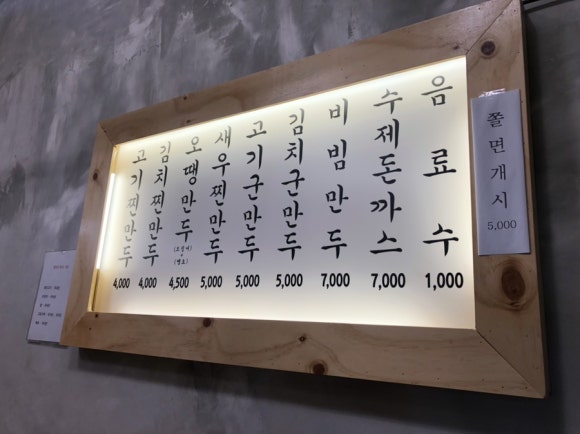 고기찐만두 4,000
김치찐만두 4,000
오땡만두 (오징어 + 땡초) 4,500
새우찐만두 5,000
고기군만두 5,000
김치군만두 5,000
비빔만두 7,000
수제돈까스 7,000
음료수 1,000
쫄면개시 5,000